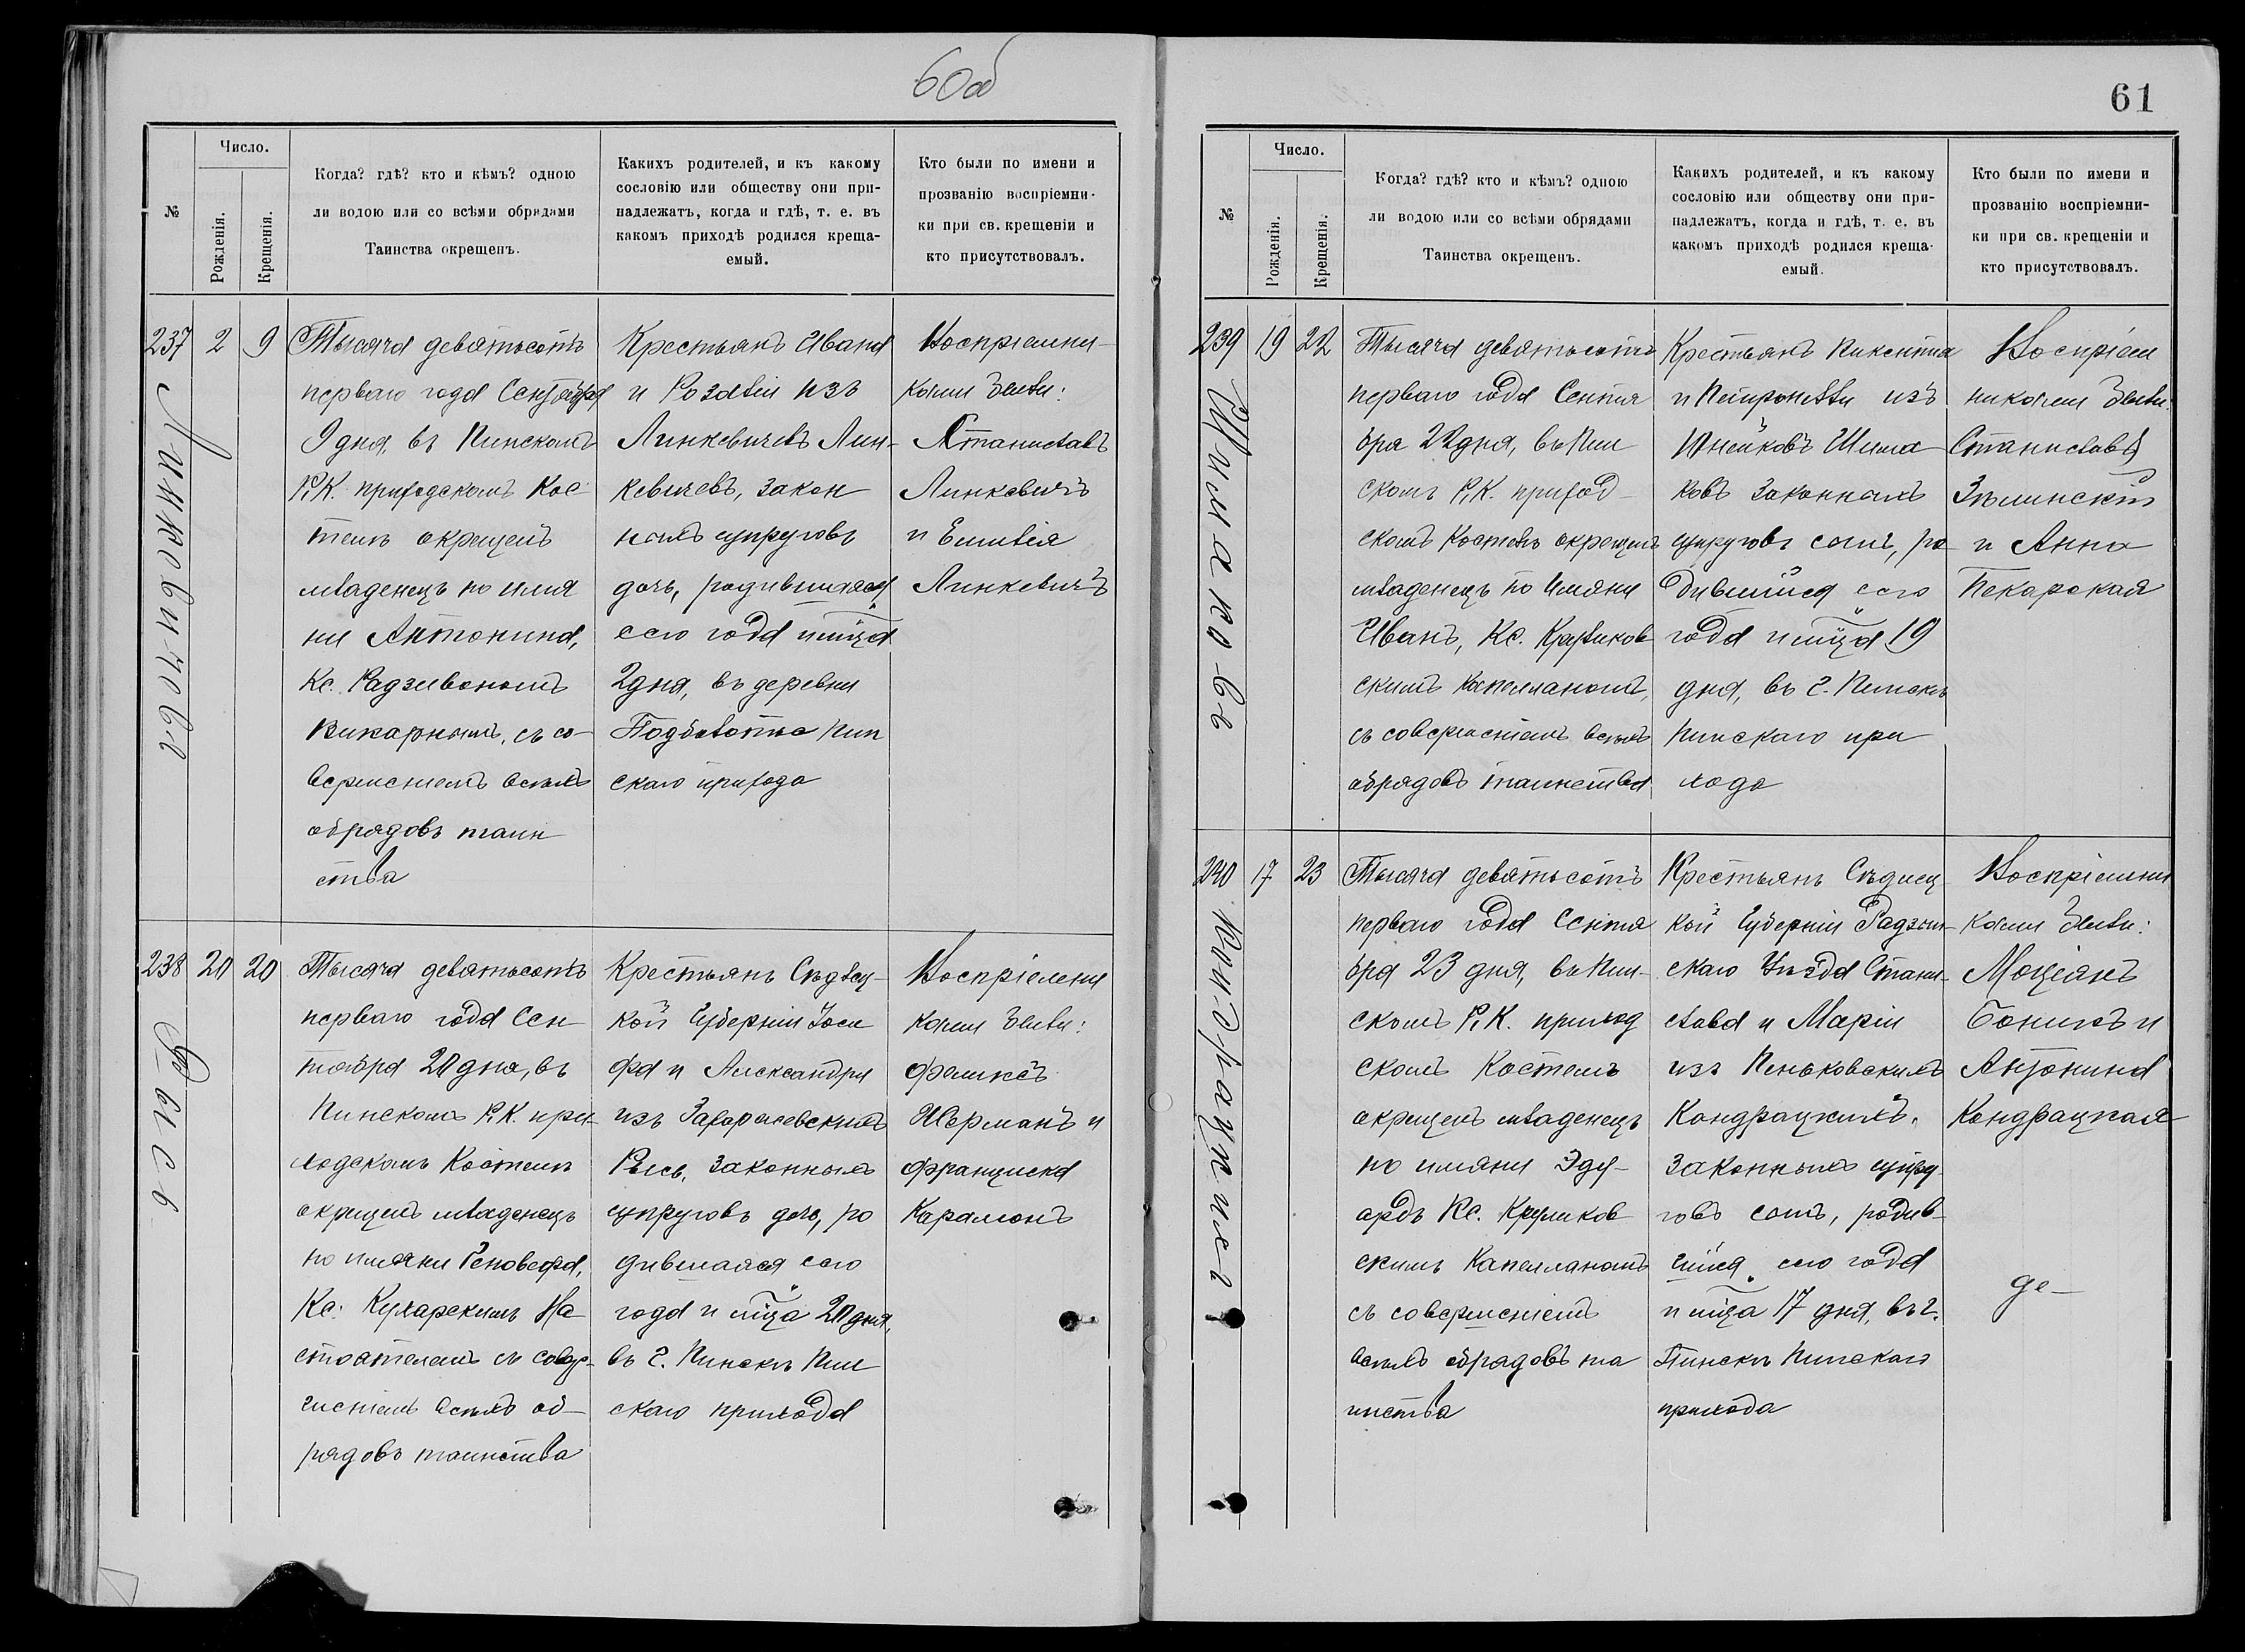 60об
№
Число.
Рожденія.
Крещенія.
Когда? гдѣ? кто и кѣмъ? одною
ли водою или со всѣми обрядами
Таинства окрещенъ.
Какихъ родителей, и къ какому
сословію или обществу они при-
надлежатъ, когда и гдѣ, т. е. въ
какомъ приходѣ родился креща-
емый.
Кто были по имени и
прозванію воспріемни-
ки при св. крещеніи и
кто присутствовалъ.
237
2
9
Линкевичовъ
Тысяча девятьсотъ
перваго года Сентября
9 дня, въ Пинскомъ
Р. К. приходскомъ Кос
телѣ окрещенъ
младенецъ по имя
ни Антонина,
Кс. Радзивономъ
Викарнымъ, съ со-
вершеніемъ всѣхъ
обрядовъ таин
ства
Крестьянъ Ивана
и Розаліи изъ
Линкевичевъ Лин-
кевичевъ, закон
ныхъ супруговъ
дочь, родившаяся
сего года и мѣца
2 дня, въ деревни
Подболотье Пин
скаго прихода
Воспріемни-
ками были:
Станиславъ
Линкевичъ
и Емилія
Линкевичъ
238
20
20
Рысь
Тысяча девятьсотъ
перваго года Сен
тября 20 дня, въ
Пинскомъ Р. К. при-
ходскомъ Костелѣ
окрещенъ младенецъ
по имяни Геновефа,
Кс. Кухарскимъ На
стоятелемъ съ совер-
шеніемъ всѣхъ об-
рядовъ таинства
Крестьянъ Сѣдлец-
кой Губерніи Іоси
фа и Александри
изъ
Рысь, законныхъ
супруговъ дочь, ро
дившаяся сего
года и мѣца 20 дня,
въ г. Пинскѣ Пин
скаго прихода
Воспріемни
ками были:
Феликсъ
и
Франциска
Карамонъ
61
№
Число.
Рожденія.
Крещенія.
Когда? гдѣ? кто и кѣмъ? одною
ли водою или со всѣми обрядами
Таинства окрещенъ.
Какихъ родителей, и къ какому
сословію или обществу они при-
надлежатъ, когда и гдѣ, т. е. въ
какомъ приходѣ родился креща-
емый.
Кто были по имени и
прозванію воспріемни-
ки при св. крещеніи и
кто присутствовалъ.
239
19
22
Шимаковъ
Тысяча девятьсотъ
перваго года Сентя
бря 22 дня, въ Пин
скомъ Р. К. приход-
скомъ Костелѣ окрещенъ
младенецъ по имяни
Иванъ, Кс. Круликов
скимъ Капелланомъ,
съ совершеніемъ всѣхъ
обрядовъ таинства
Крестьянъ Викентія
и Петронелли изъ
Шима
ковъ законныхъ
супруговъ сынъ, ро
дившійся сего
года и мѣца 19
дня, въ г. Пинскѣ
Пинскаго при
хода
Воспріем
никами были:
Станиславъ
Зѣлинскій
и Анна
Пекарская
240
17
23
Кондрацкихъ
Тысяча девятьсотъ
перваго года Сентя
бря 23 дня, въ Пин-
скомъ Р. К. приход
скомъ Костелѣ
окрещенъ младенецъ
по имяни Эду-
ардъ Кс. Круликов
скимъ Капелланомъ
съ совершеніемъ
всѣхъ обрядовъ та
инства
Крестьянъ Сѣдлец-
кой Губерніи Радзын-
скаго Уѣзда Стани-
слава и Маріи
изъ Пеньковскихъ
Кондрацкихъ,
законныхъ супру-
говъ сынъ, родив-
шійся сего года
и мѣца 17 дня, въ г.
Пинскѣ Пинскаго
прихода
Воспріемни
ками были:
и
Антонина
Кондрацкая
де-